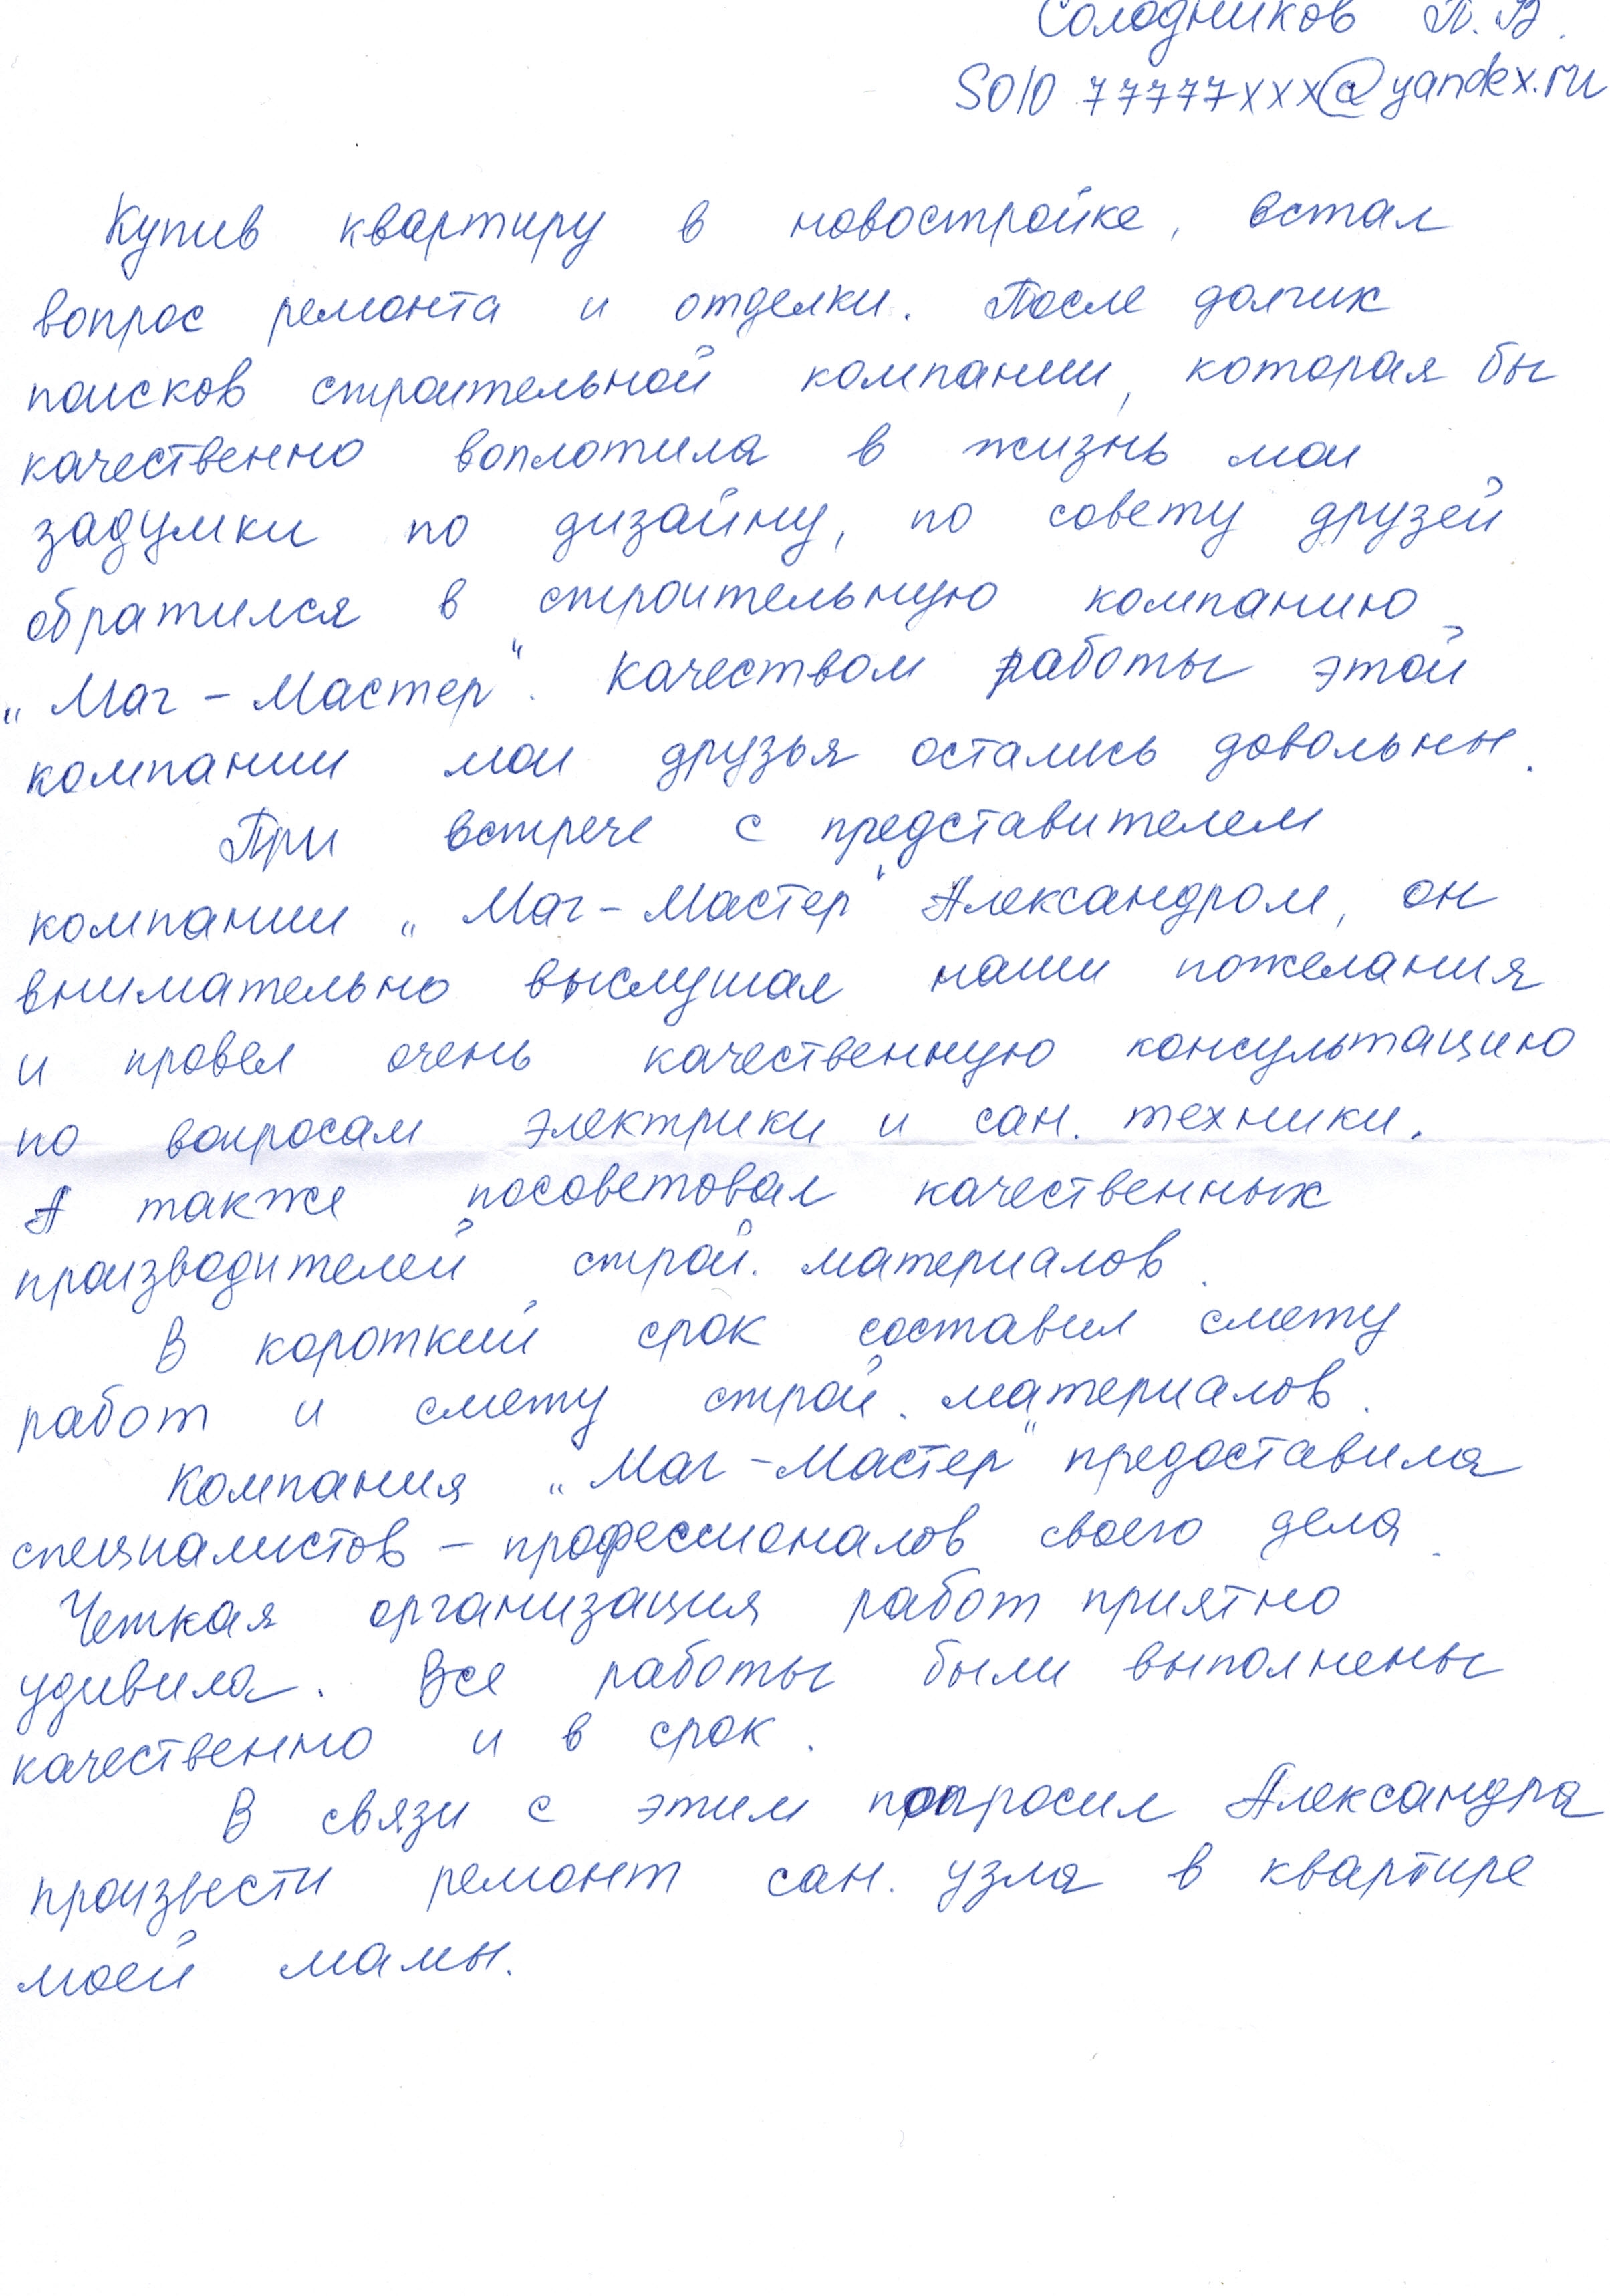 Солодников П.В.
SOlO 77777xxx@yandex.ru
Купив квартиру в новостройке, встал
вопрос ремонта и отделки. После долгих
поисков строительной компании, которая бы
качественно воплотила в жизнь мои
задумки по дизайну, по совету друзей
обратился в строительную компанию
„Маг-Мастер". Качеством работы этой
компании мои друзья остались довольны.
При встрече с представителем
компании „Маг-Мастер" Александром, он
внимательно выслушал наши пожелания
и провел очень качественную консультацию
по вопросам электрики и сан. техники.
А также посоветовал качественных
производителей строй. материалов.
В короткий срок составил смету
работ и смету строй. материалов.
Компания „Маг-Мастер" предоставила
специалистов – профессионалов своего дела.
Четкая организация работ приятно
удивила. Все работы были выполнены
качественно и в срок.
В связи с этим попросил Александра
произвести ремонт сан. узла в квартире
моей мамы.